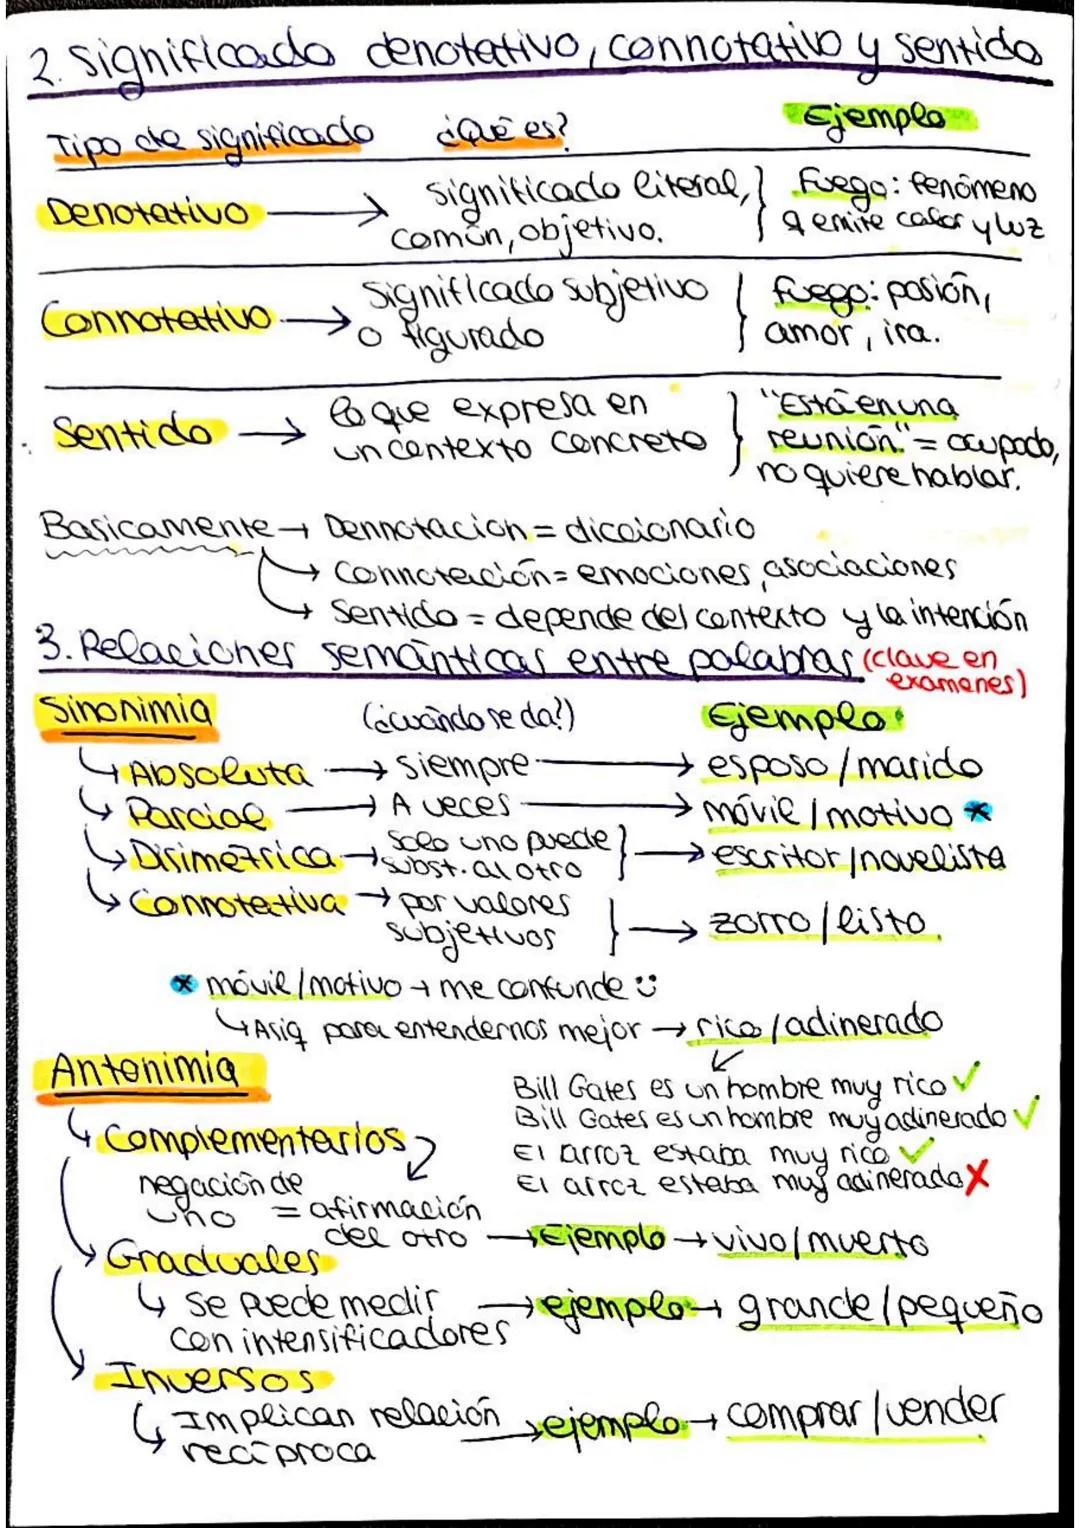 2. Significado denotativo, connotativo y sentido
Tipo de significado ¿Qué es? Ejemplo
Denotativo → significado literal, común, objetivo. } Fuego: fenómeno q emite calor y luz
Connotativo → Significado subjetivo o figurado } Fuego: pasión, amor, ira.
Sentido → lo que expresa en un contexto concreto } "Está en una reunión" = ocupado, no quiere hablar.
Basicamente → Dennotacion = diccionario
→ Connotación = emociones, asociaciones
→ Sentido = depende del contexto y la intención
3. Relaciones semánticas entre palabras (clave en examenes)
Sinonimia (¿cuándo se da?) Ejemplo:
↳ Absoluta → siempre → esposo / marido
↳ Parcial → A veces → móvil / motivo *
↳ Disimétrica → Solo uno puede subst. al otro } → escritor / novelista
↳ Connotativa → por valores subjetivos } → zorro / listo
* móvil / motivo → me confunde
↳ Asiq para entendernos mejor → rico / adinerado
Bill Gates es un hombre muy rico ✓
Bill Gates es un hombre muy adinerado ✓
El arroz estaba muy rico ✓
El arroz estaba muy adinerado X
Antonimia
↳ Complementarios
negación de uno = afirmación del otro → Ejemplo → vivo / muerto
Graduales
↳ Se puede medir con intensificadores → ejemplo → grande / pequeño
Inversos
↳ Implican relación recíproca → ejemplo → comprar / vender